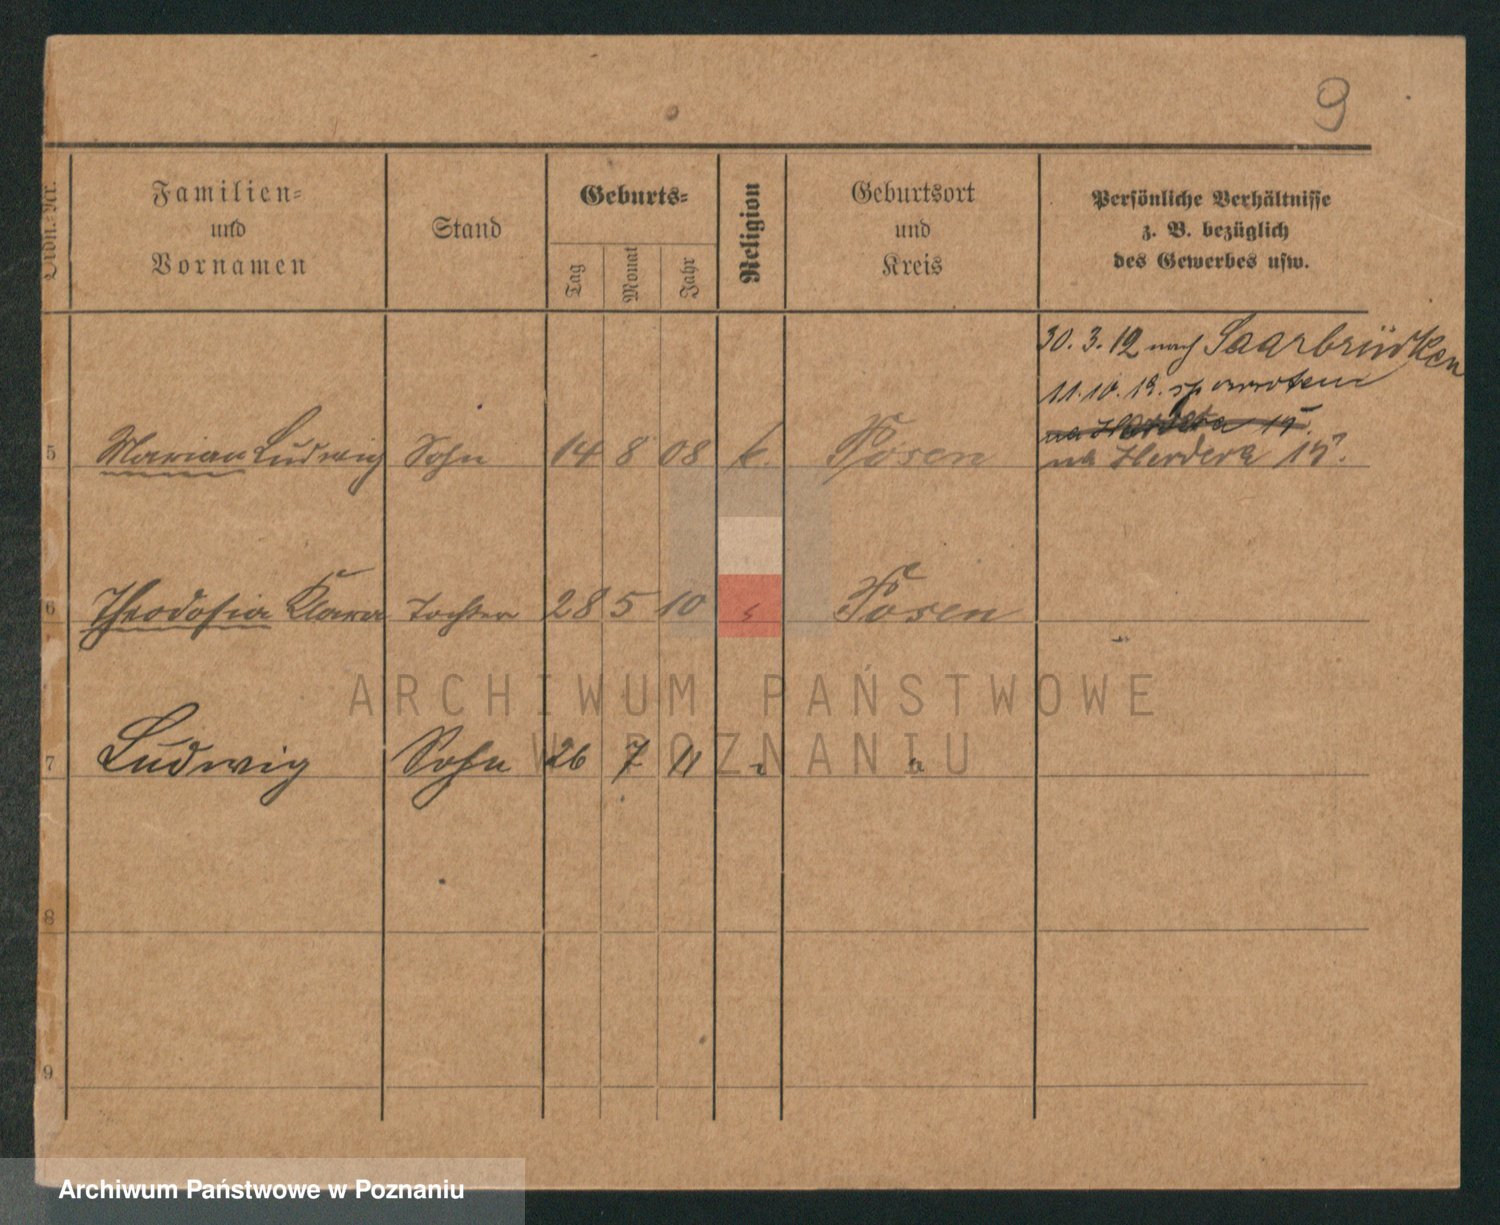 9
Ordn.-Nr.
Familien-
und
Vornamen
Stand
Geburts-
Tag
Monat
Jahr
Religion
Geburtsort
und
Kreis
Persönliche Verhältnisse
z. B. bezüglich
des Gewerbes usw.
30. 3. 12 nach Saarbrücken
11. 10. 19. z powrotem
na Herdera 15.
5 Marian Ludwig Sohn 14 8 08 k. Posen na Herdera 15.
6 Theodosia Klara Tochter 28 5 10 Posen
ARCHIWUM PAŃSTWOWE
W POZNANIU
7 Ludwig Sohn 26 7 11 " "
8
9
Archiwum Państwowe w Poznaniu